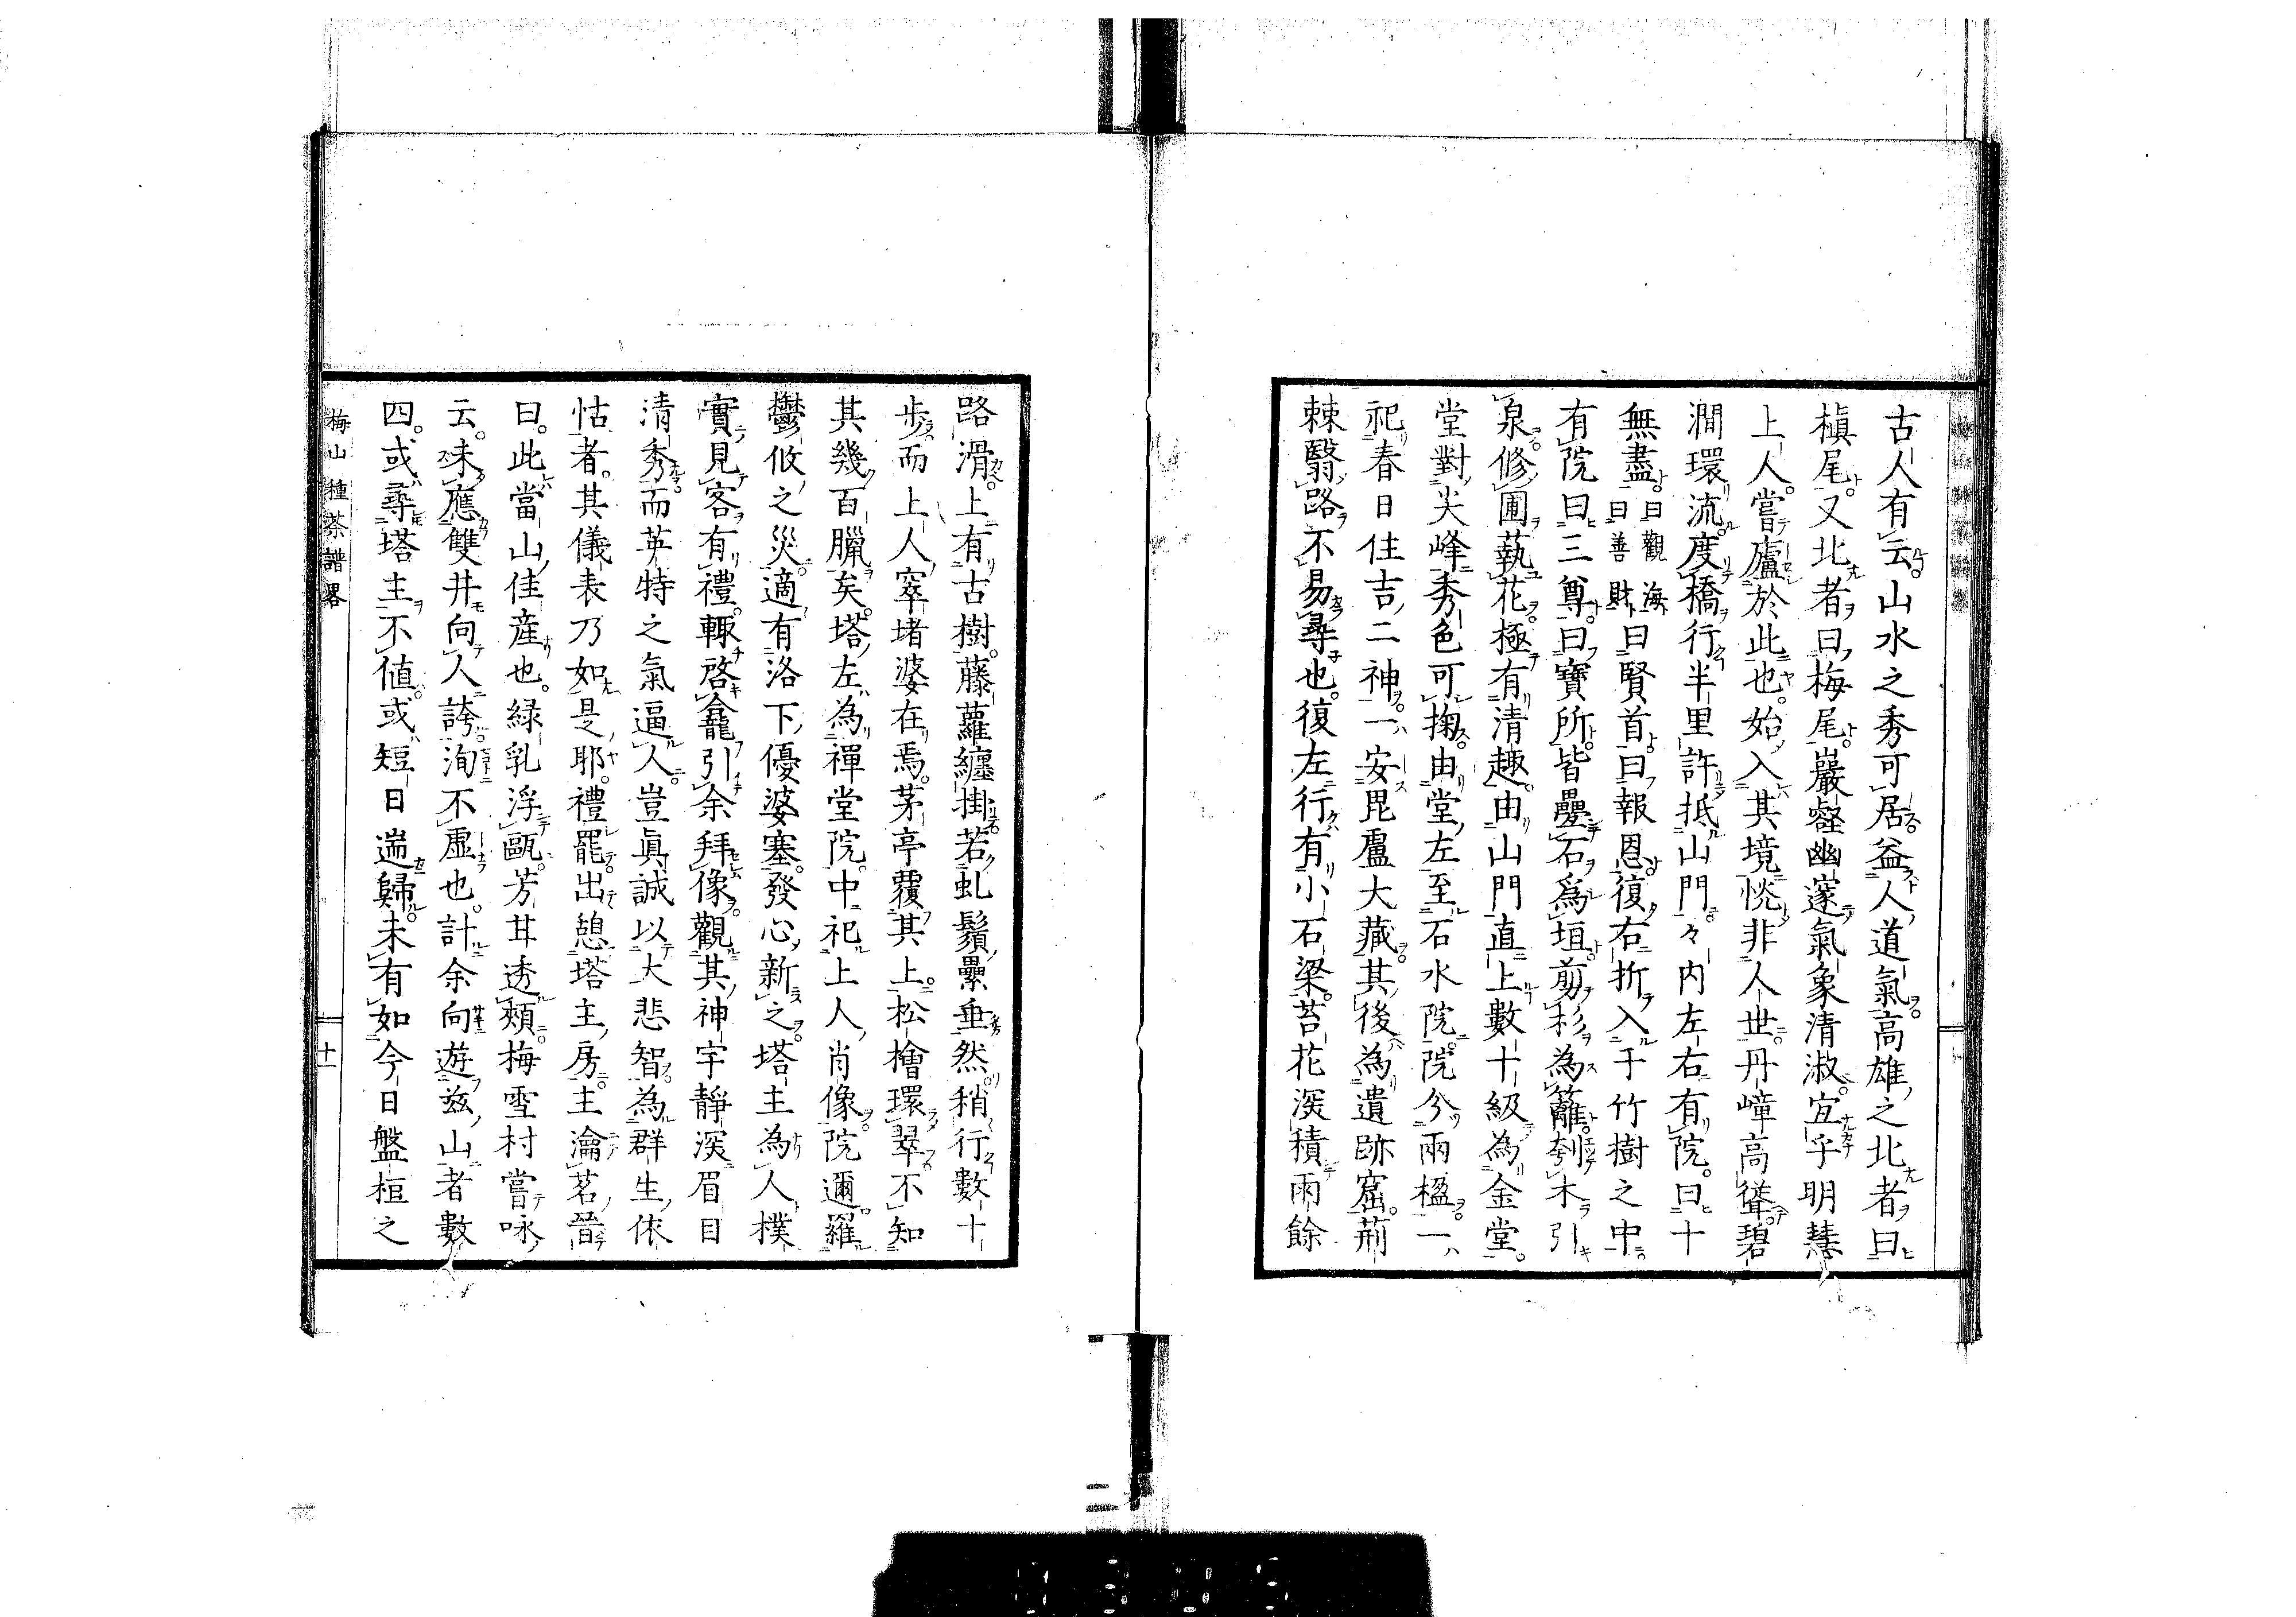 古人有云山水之秀可居益人道氣高雄之北者曰
槇尾又北者曰梅尾巖壑幽邃氣象清淑宜乎明慧
上人嘗廬於此也始入其境恍非人世丹嶂高聳碧
澗環流度橋行半里許抵山門々内左右有院曰十
無盡曰觀海曰善財曰賢首曰報恩復右折入于竹樹之中
有院曰三尊曰寶所皆疊石爲垣剪杉為籬刳木引
泉修圃蓺花極有清趣由山門直上數十級為金堂
堂對尖峰秀色可掬由堂左至石水院院分兩楹一
祀春日住吉二神一安毘盧大藏其後為遺跡窟荊
棘翳路不易尋也復左行有小石梁苔花深積雨餘
路滑上有古樹藤蘿纏掛若虬鬚纍垂然稍行數十
步而上人窣堵婆在焉茅亭覆其上松檜環翠不知
其幾百臘矣塔左為禪堂院中祀上人肖像院邇羅
鬱攸之災適有洛下優婆塞發心新之塔主為人樸
實見客有禮輙啓龕引余拜像觀其神宇靜深眉目
清秀而英特之氣逼人豈眞誠以大悲智為群生依
怙者其儀表乃如是耶禮罷出憩塔主房主瀹茗晉
曰此當山佳産也緑乳浮甌芳甘透頰梅雪村嘗咏
云未應雙井向人誇洵不虛也計余向遊玆山者數
四或尋塔主不値或短日遄歸未有如今日盤桓之
梅山種茶譜畧
十一